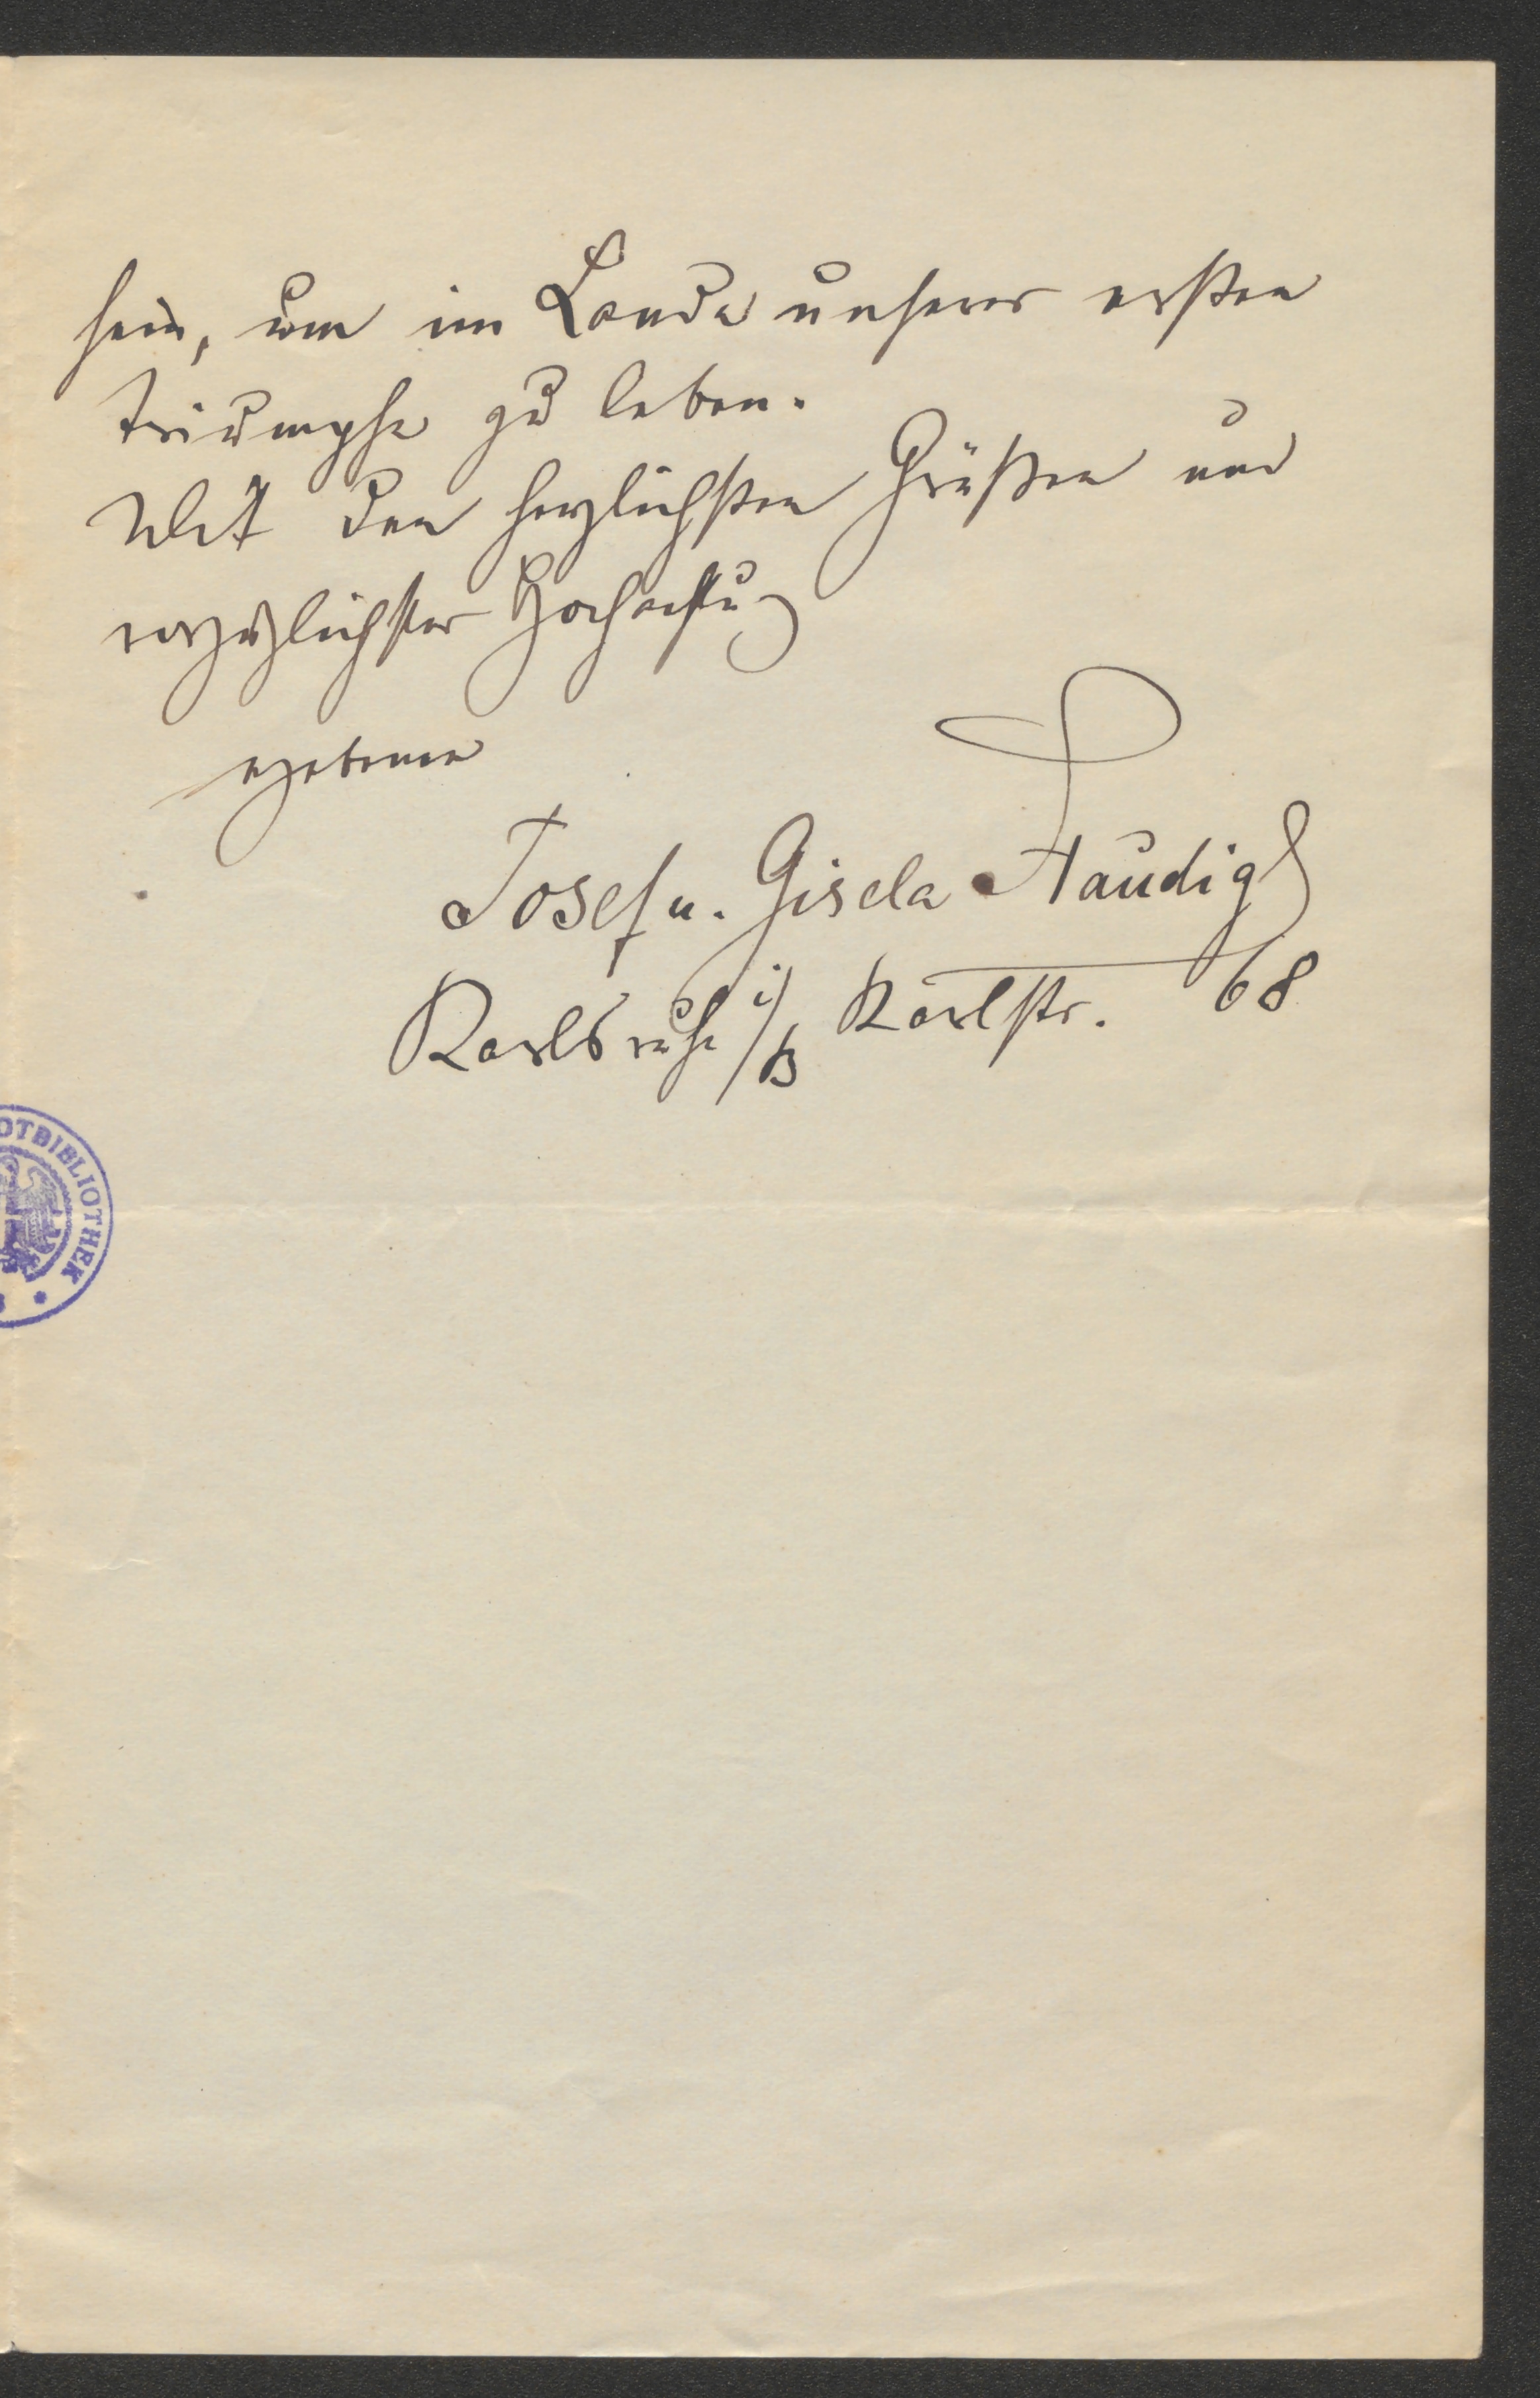 sein, um im Lande unserer ersten
Triumphe zu leben.
Mit den herzlichsten Grüßen und
vorzüglichster Hochachtung
ergebenen
Josef u. Gisela Staudigl
Karlsruhe i/B Karlstr. 68
OTBIBLIOTHEK